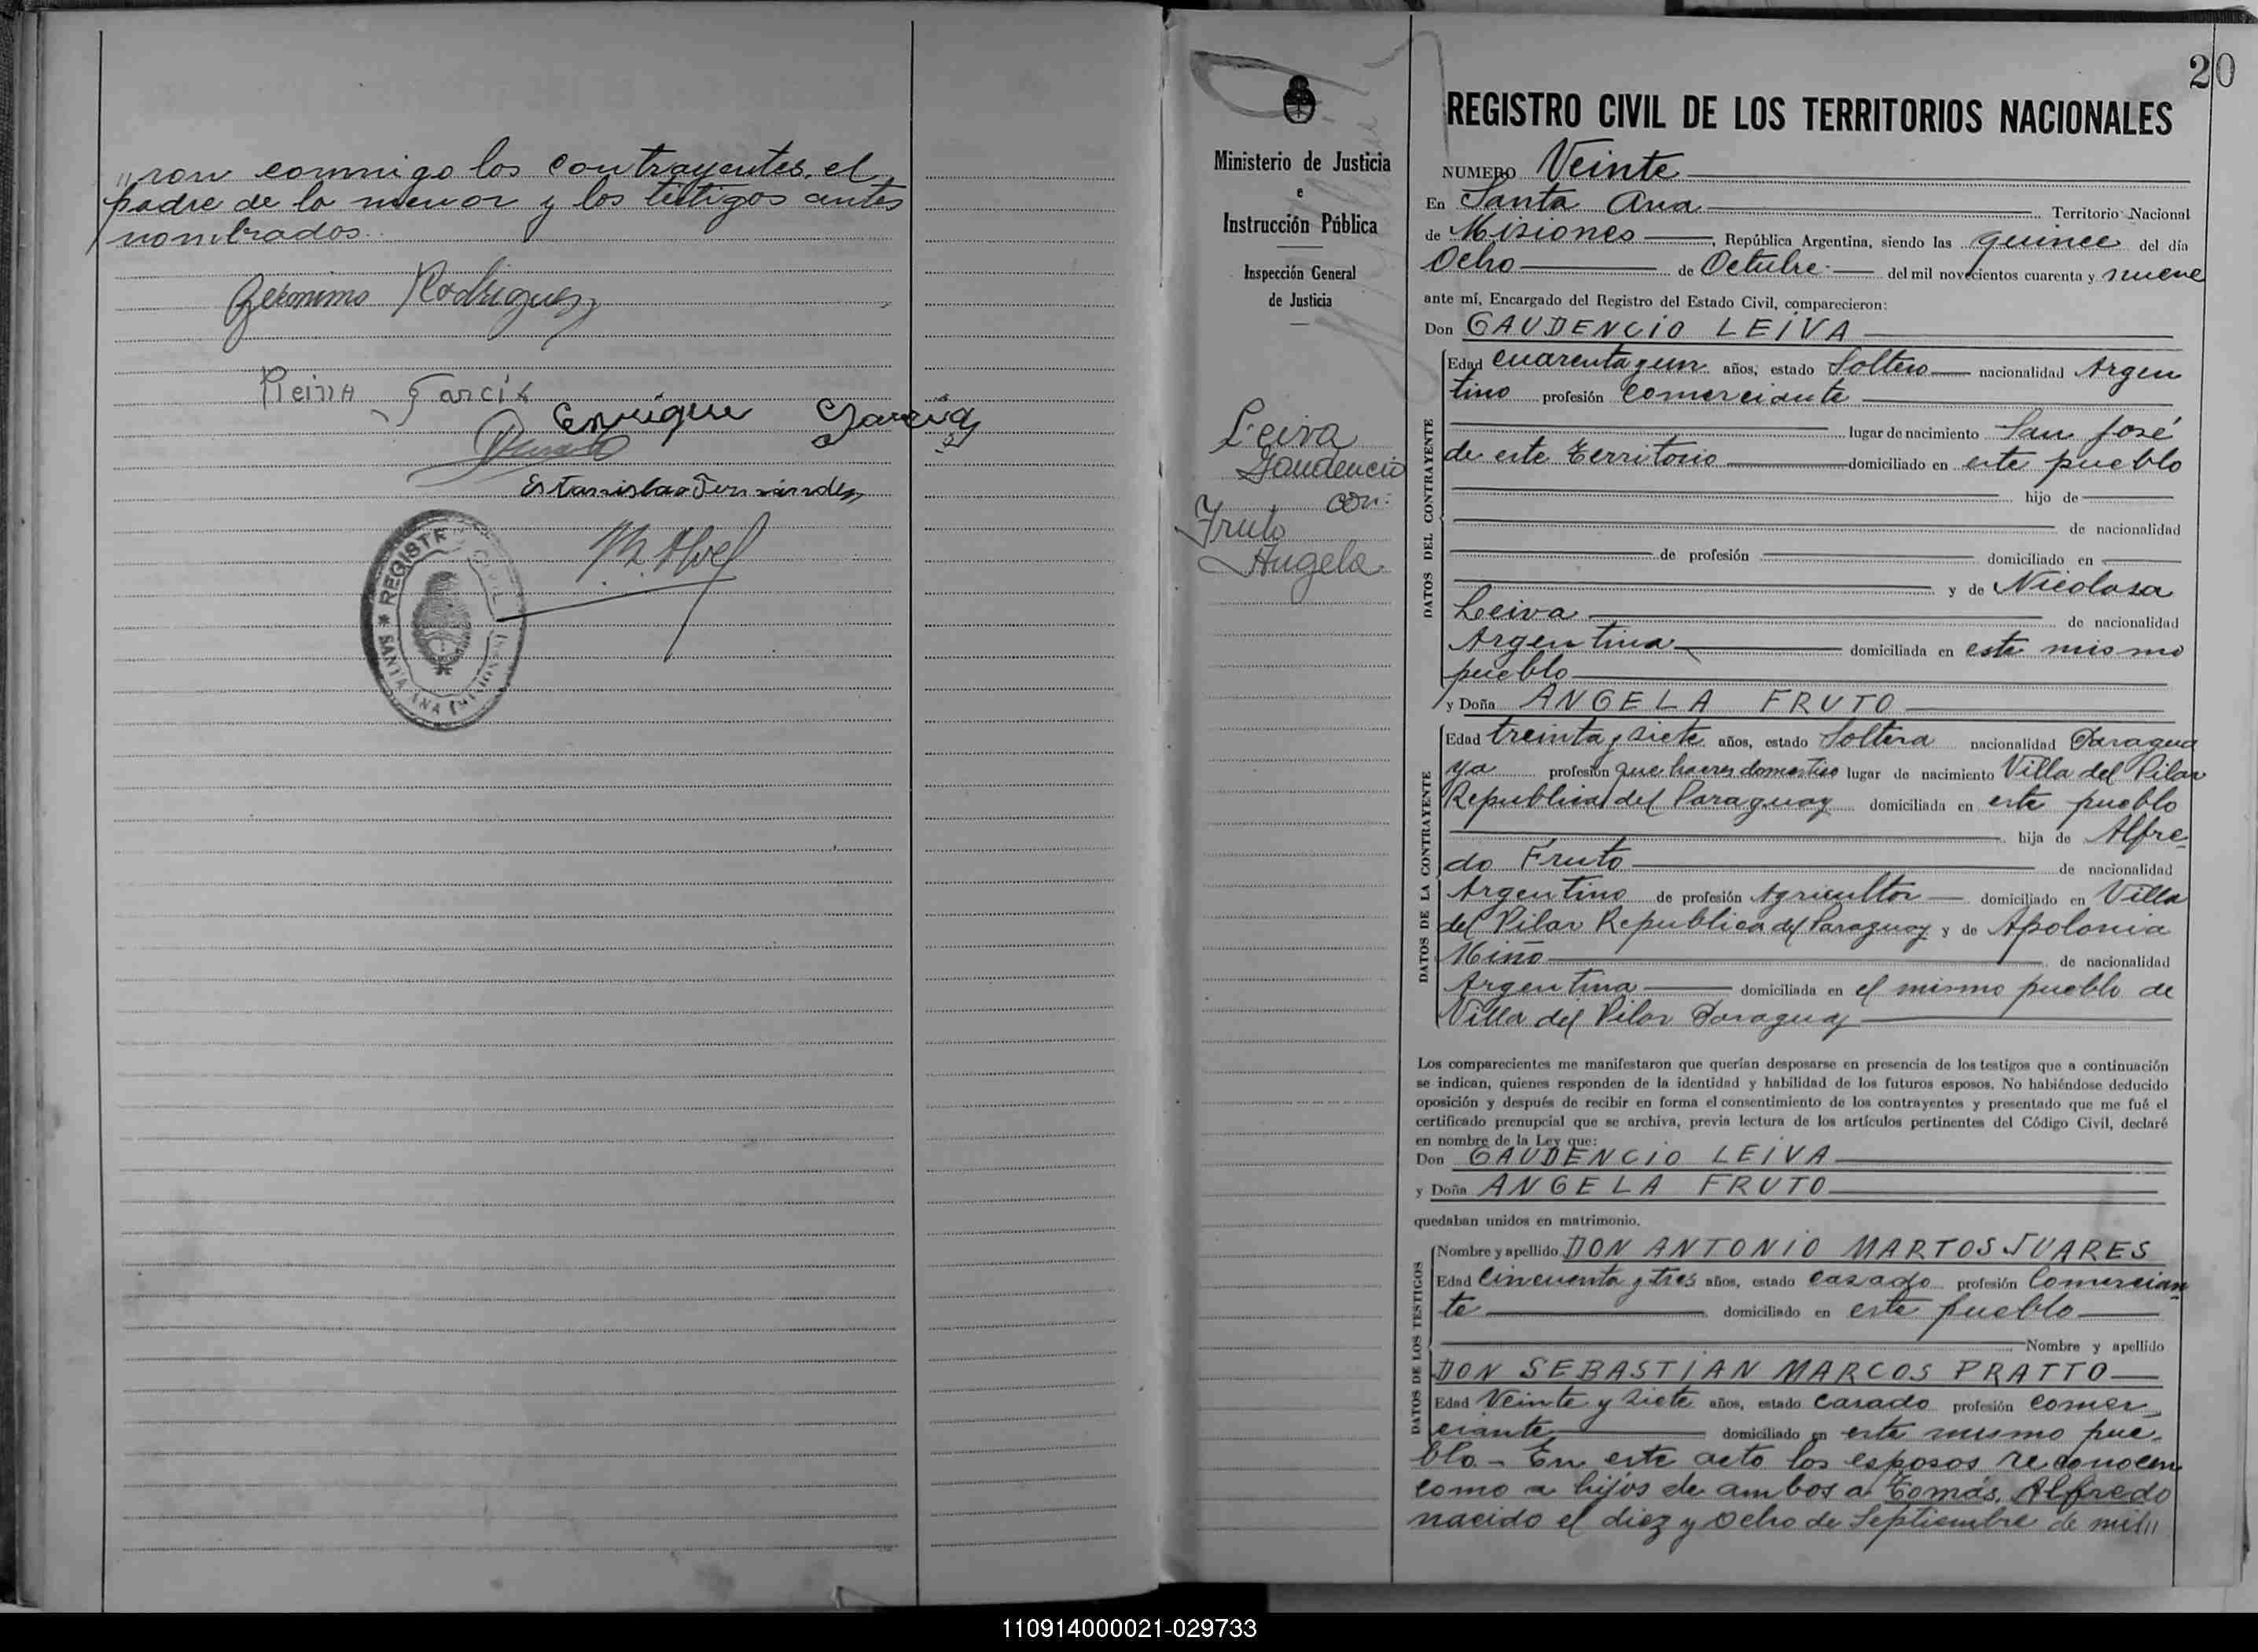 "ron conmigo los contrayentes, el
padre de la menor y los testigos antes
nombrados.
Geronimo Rodriguez
Reina Garcia
Enrique Garcia
Estanislao Fernández
REGISTRO CIVIL
SANTA ANA (MISIONES)
20
Ministerio de Justicia
e
Instrucción Pública
Inspección General
de Justicia
Leiva
Gaudencio
con:
Fruto
Angela
REGISTRO CIVIL DE LOS TERRITORIOS NACIONALES
NUMERO Veinte
En Santa Ana Territorio Nacional
de Misiones, República Argentina, siendo las quince del día
Ocho de Octubre del mil novecientos cuarenta y nueve
ante mí, Encargado del Registro del Estado Civil, comparecieron:
Don GAUDENCIO LEIVA
DATOS DEL CONTRAYENTE
Edad cuarenta y un años, estado Soltero nacionalidad Argen
tino profesión Comerciante
lugar de nacimiento San José
de este Territorio domiciliado en este pueblo
hijo de
de nacionalidad
de profesión domiciliado en
y de Nicolasa
Leiva de nacionalidad
Argentina domiciliada en este mismo
pueblo
y Doña ANGELA FRUTO
DATOS DE LA CONTRAYENTE
Edad treinta y siete años, estado Soltera nacionalidad Paragua
ya profesión que haceres domestico lugar de nacimiento Villa del Pilar
Republica del Paraguay domiciliada en este pueblo
hija de Alfre-
do Fruto de nacionalidad
Argentino de profesión Agricultor domiciliado en Villa
del Pilar Republica del Paraguay y de Apolonia
Miño de nacionalidad
Argentina domiciliada en el mismo pueblo de
Villa del Pilar Paraguay
Los comparecientes me manifestaron que querían desposarse en presencia de los testigos que a continuación
se indican, quienes responden de la identidad y habilidad de los futuros esposos. No habiéndose deducido
oposición y después de recibir en forma el consentimiento de los contrayentes y presentado que me fué el
certificado prenupcial que se archiva, previa lectura de los artículos pertinentes del Código Civil, declaré
en nombre de la Ley que:
Don GAUDENCIO LEIVA
y Doña ANGELA FRUTO
quedaban unidos en matrimonio.
DATOS DE LOS TESTIGOS
Nombre y apellido DON ANTONIO MARTOS JUARES
Edad Cincuenta y tres años, estado casado profesión Comercian
te domiciliado en este pueblo
Nombre y apellido
DON SEBASTIAN MARCOS PRATTO
Edad Veinte y siete años, estado Casado profesión comer-
ciante domiciliado en este mismo pue-
blo - En este acto los esposos reconocen
como a hijos de ambos a Tomás, Alfredo
nacido el diez y ocho de Septiembre de mil"
110914000021-029733